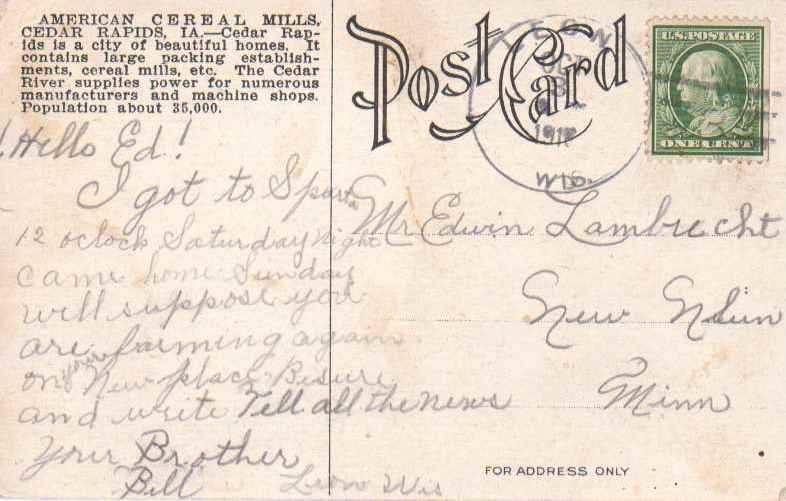 AMERICAN CEREAL MILLS,
CEDAR RAPIDS, IA.—Cedar Rap-
ids is a city of beautiful homes. It
contains large packing establish-
ments, cereal mills, etc. The Cedar
River supplies power for numerous
manufacturers and machine shops.
Population about 35,000.
Post Card
LEON
OCT
3
WIS.
U.S. POSTAGE
ONE CENT
Hello Ed!
I got to Sparta
12 oclock Saturday night
came home Sunday
will suppose you
are farming again
on your New place Besure
and write Tell all the news
Your Brother
Bill
Leon Wis
Mr Edwin Lambrecht
New Ulm
Minn
FOR ADDRESS ONLY